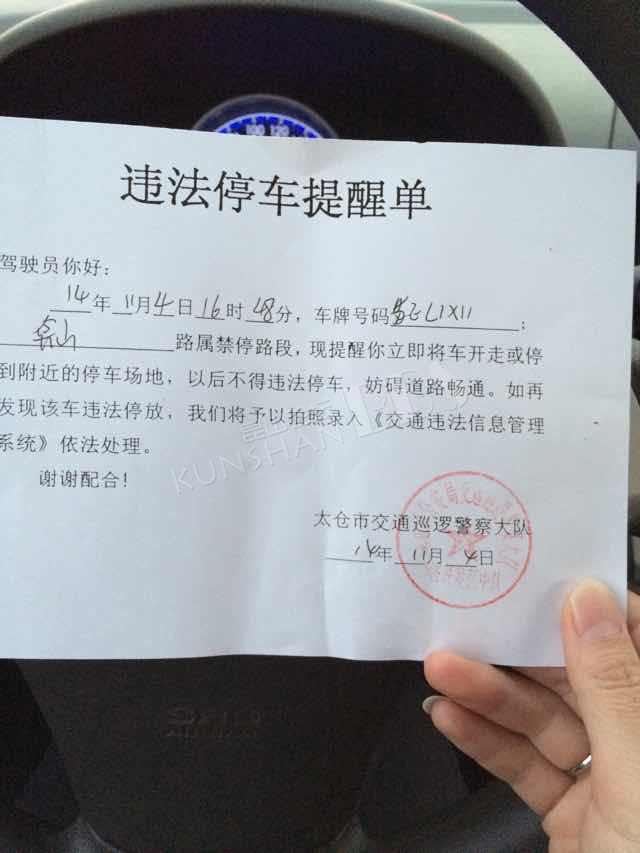 违法停车提醒单
驾驶员你好：
14年11月4日16时48分，车牌号码
路属禁停路段，现提醒你立即将车开走或停
到附近的停车场地，以后不得违法停车，妨碍道路畅通。如再
发现该车违法停放，我们将予以拍照录入《交通违法信息管理
系统》依法处理。
谢谢配合！
KUNSHAN BBS
太仓市交通巡逻警察大队
14年11月4日